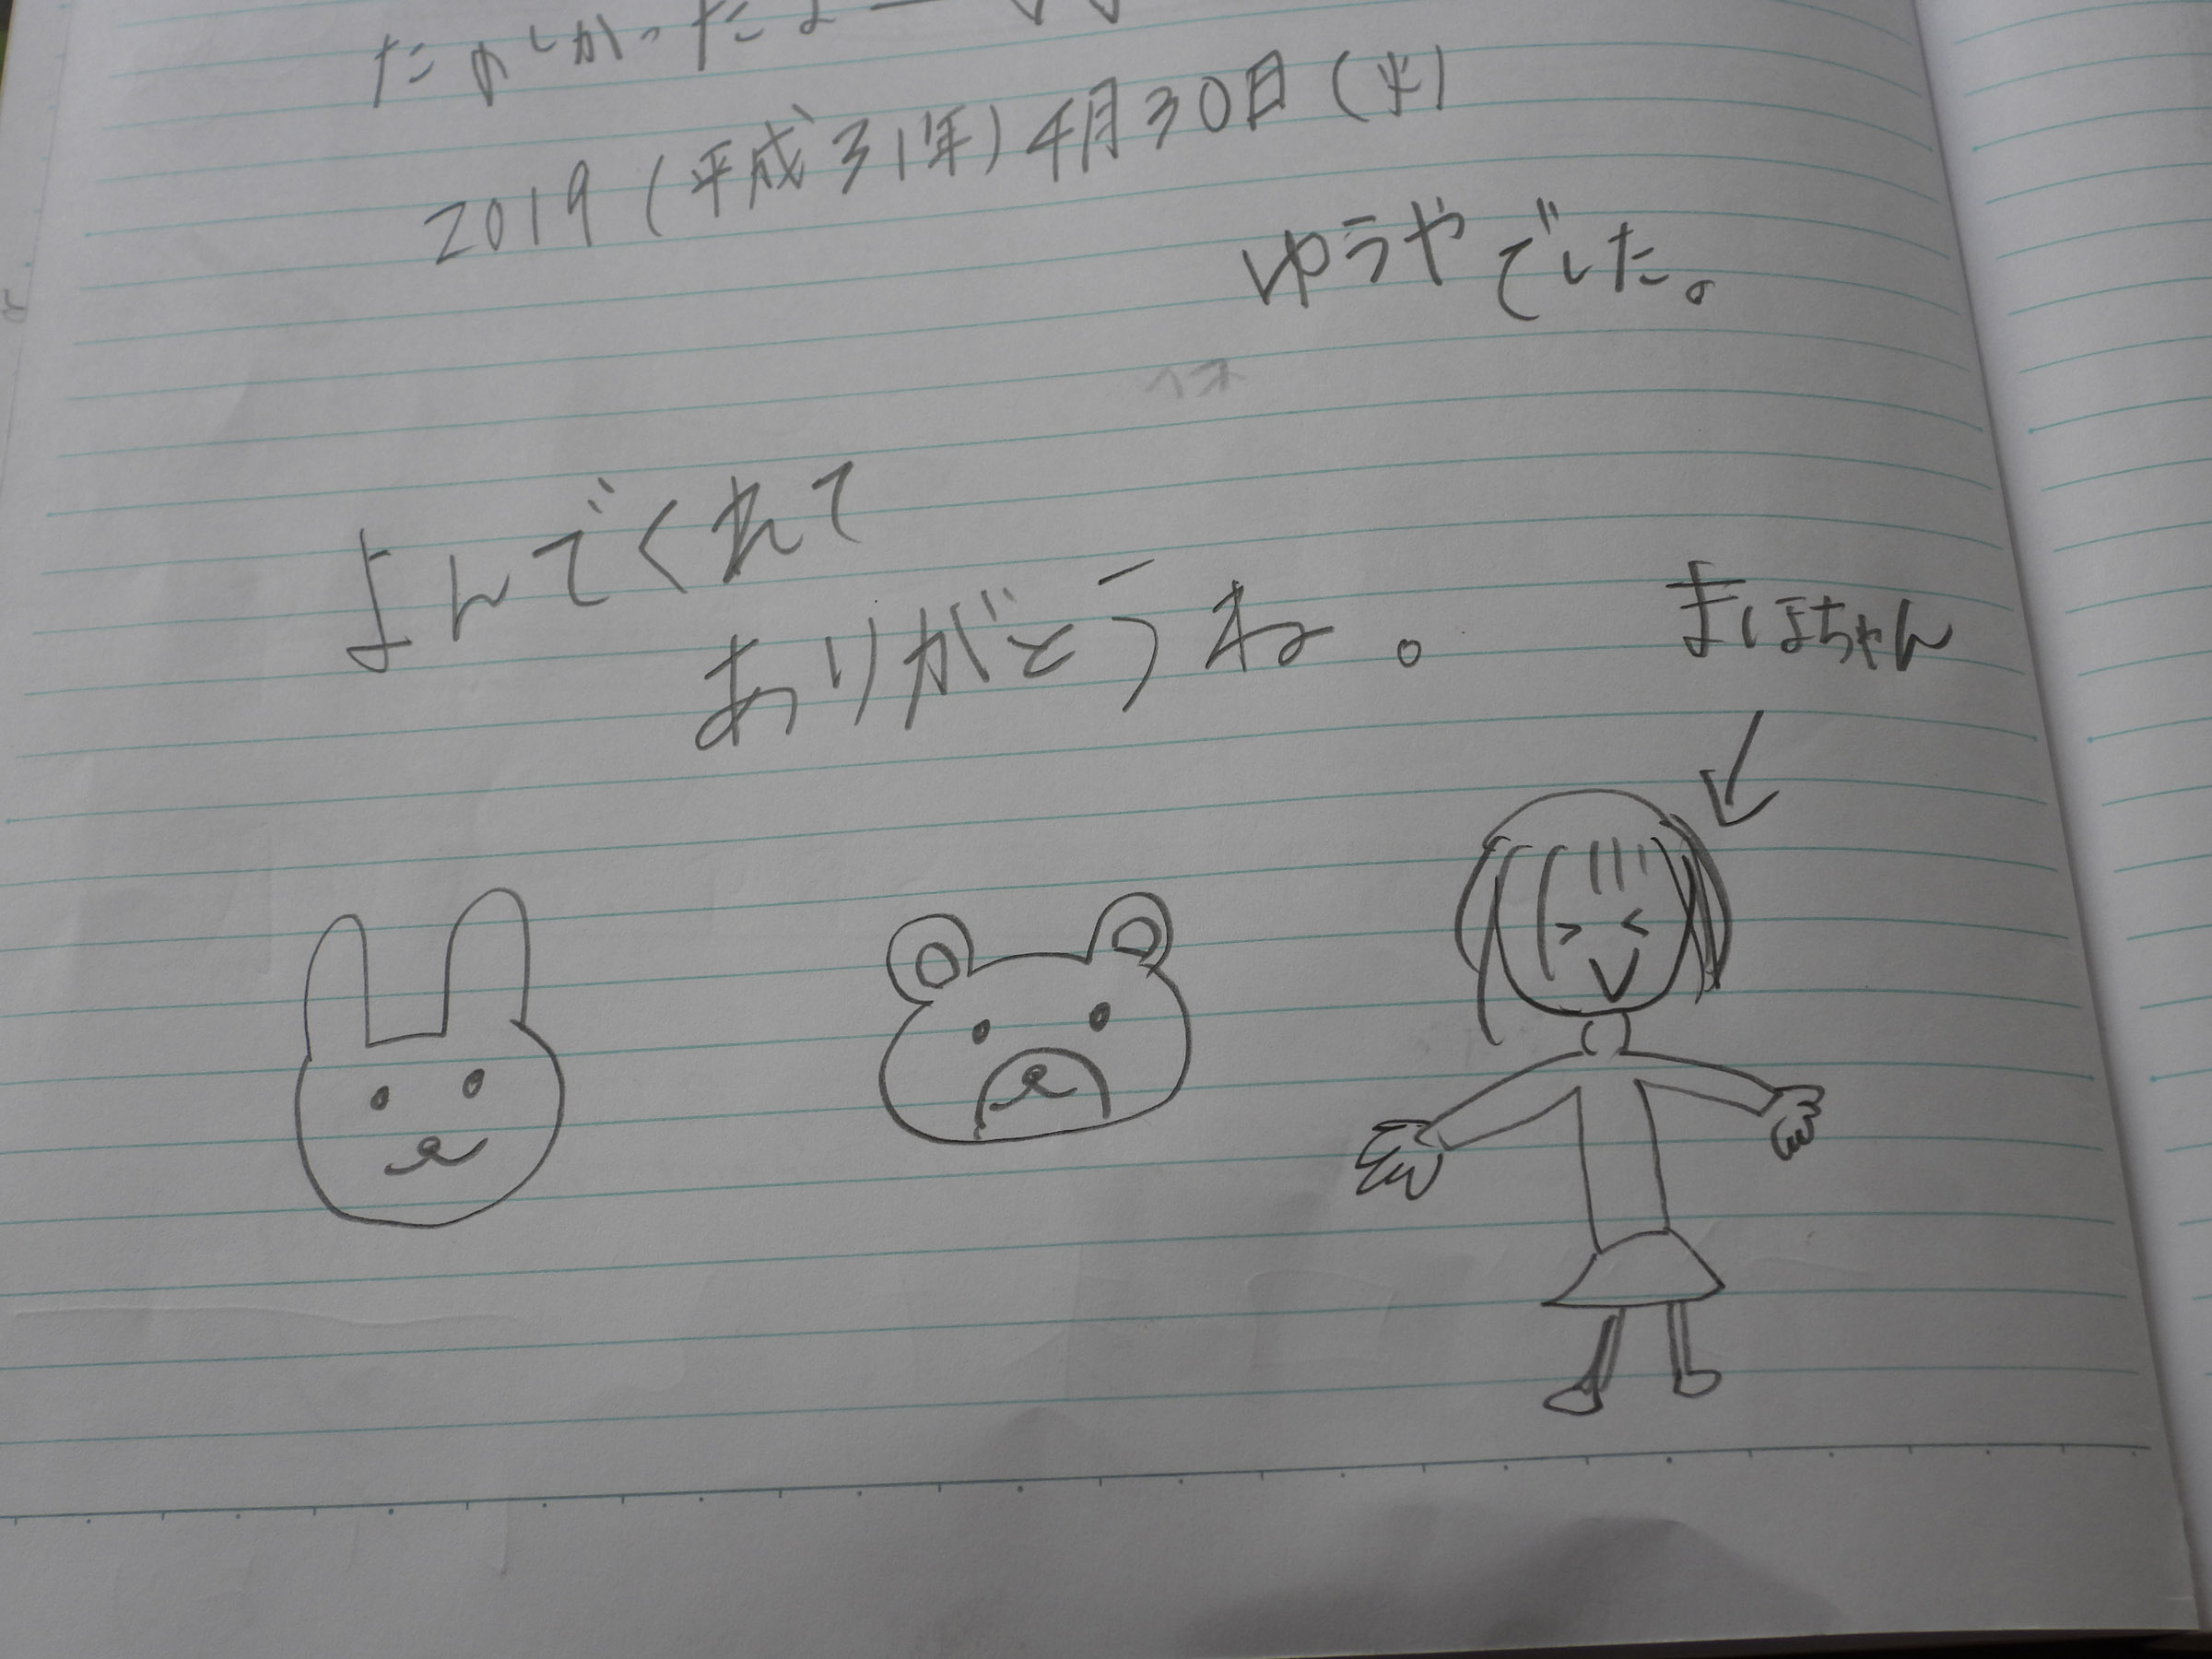 たのしかったよー
2019(平成31年)4月30日(火)
ゆうやでした。
よんでくれて
ありがとうね。
まほちゃん